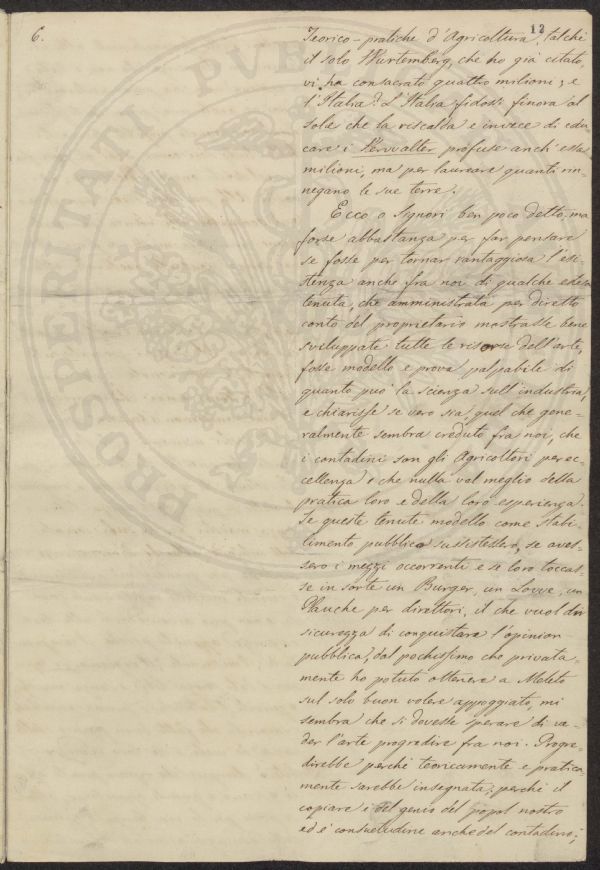 6.
12
Teorico-pratiche d'Agricoltura, talchè
il solo Wurtemberg, che ho già citato,
vi ha consacrato quattro milioni; e
l'Italia? L'Italia fidossi finora al
sole che la riscalda e invece di edu-
care i Vervalter profuse anch'essa
milioni, ma per laureare quanti rin-
negano le sue terre.
Ecco o Signori ben poco detto, ma
forse abbastanza per far pensare
se fosse per tornar vantaggiosa l'esi-
stenza anche fra noi di qualche estesa
tenuta, che amministrata per diretto
conto del proprietario mostrasse bene
sviluppate tutte le risorse dell'arte,
fosse modello e prova palpabile di
quanto può la scienza sull'industria,
e chiarisse se vero sia quel che gene-
ralmente sembra creduto fra noi, che
i contadini son gli Agricoltori per ec-
cellenza e che nulla val meglio della
pratica loro e della loro esperienza.
Se queste tenute modello come stabi-
limento pubblico sussistessero, se aves-
sero i mezzi occorrenti e se loro toccas-
se in sorte un Burger, un Lovve, un
Plauche per direttori, il che vuol dir
sicurezza di conquistare l'opinion
pubblica, dal pochissimo che privata-
mente ho potuto ottenere a Meleto
sul solo buon volere appoggiato, mi
sembra che si dovesse sperare di ve-
der l'arte progredire fra noi. Progre-
direbbe perchè teoricamente e pratica
mente sarebbe insegnata; perchè il
copiare è del genio del popol nostro
ed è consuetudine anche del contadino;
PROSPERITATI PVB